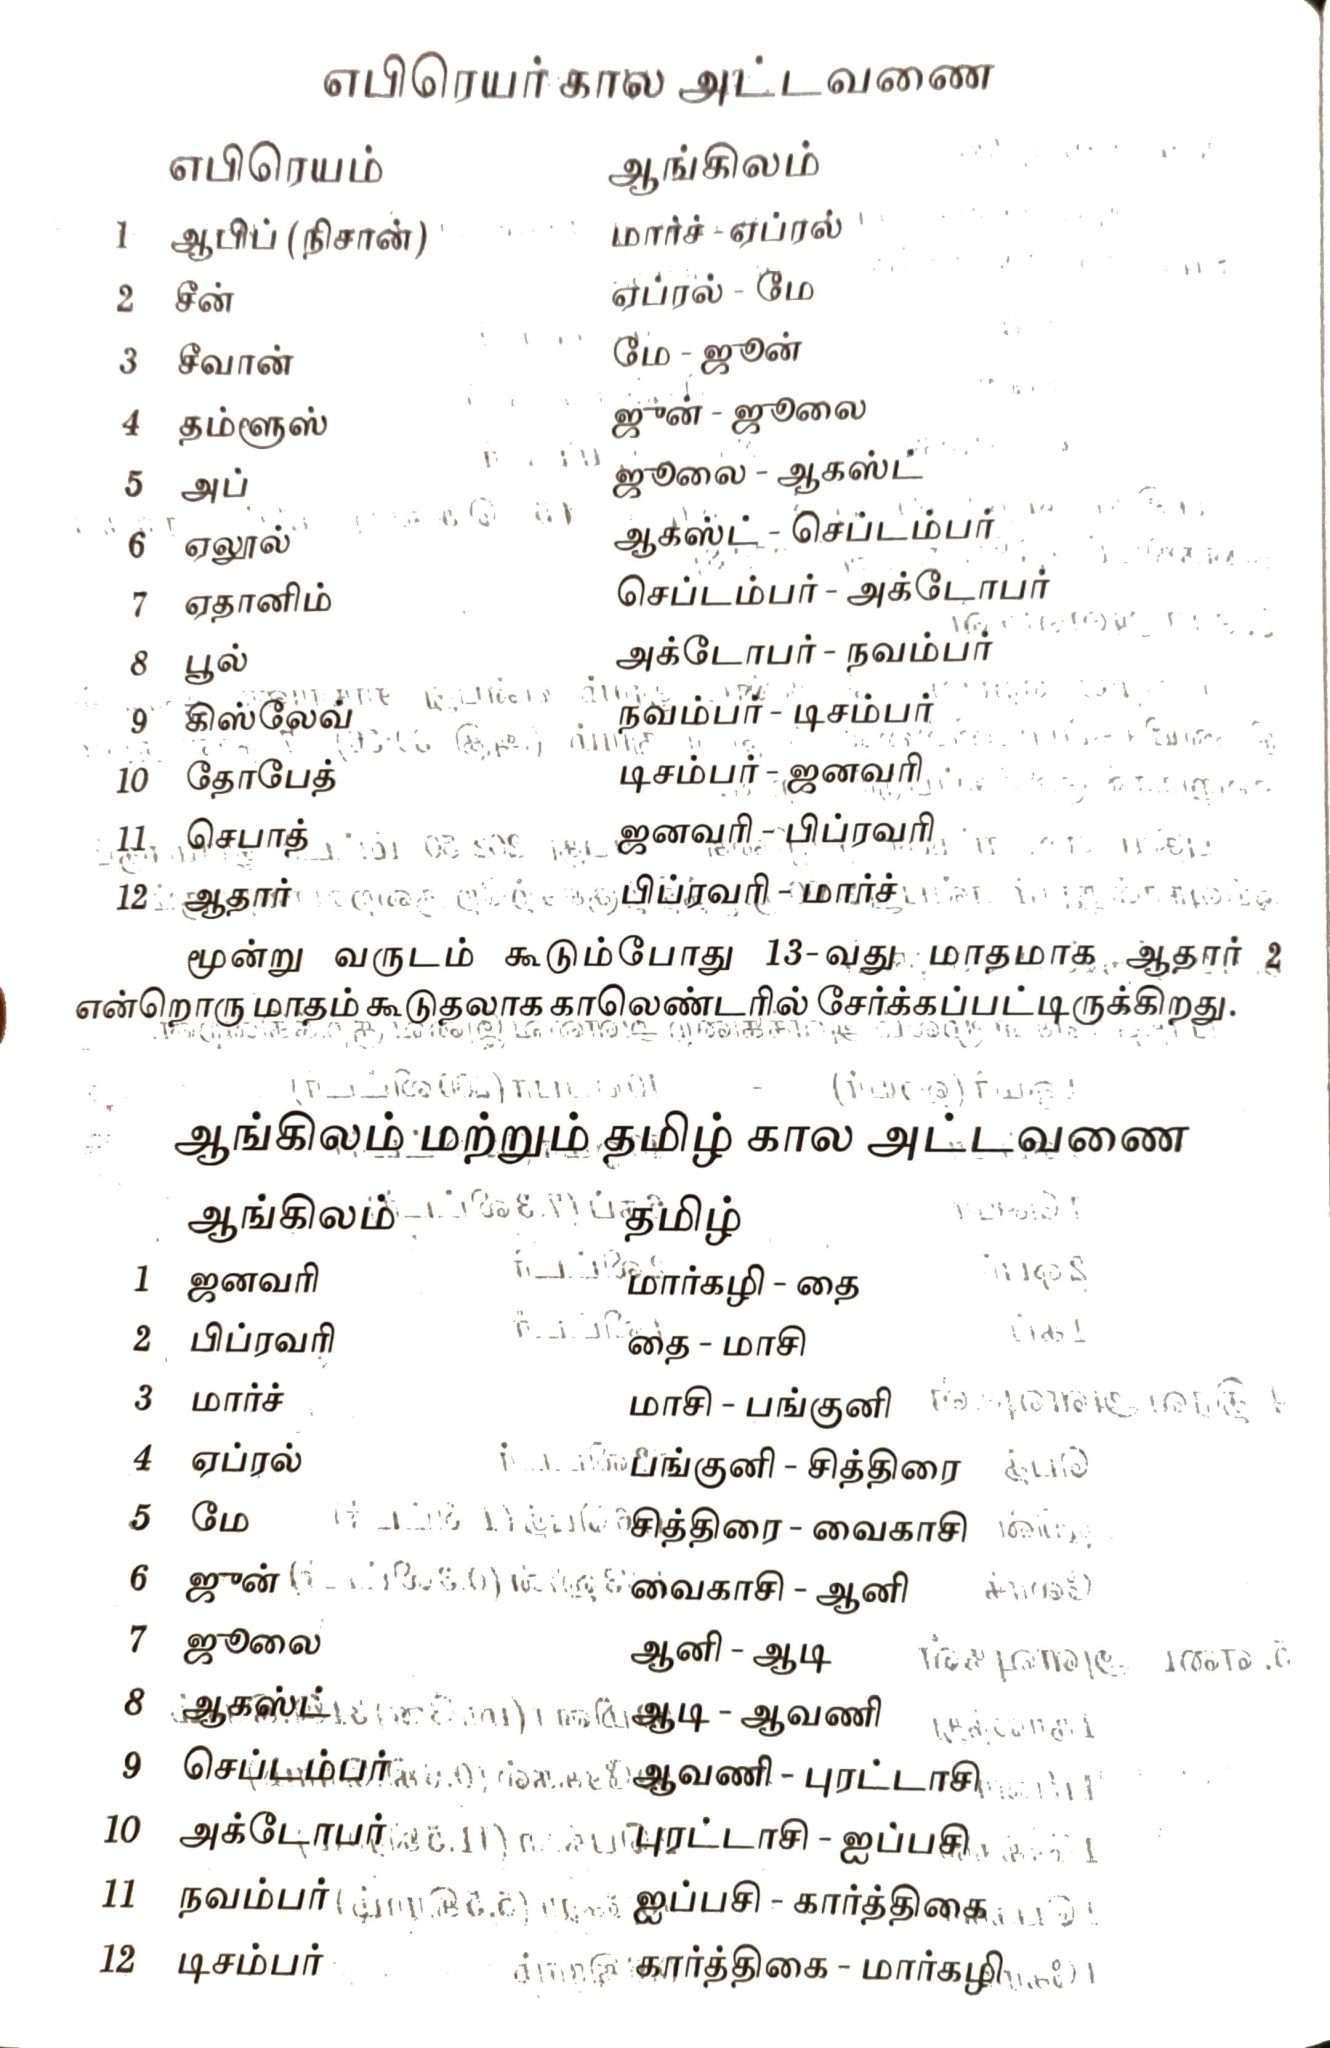 எபிரெயர் கால அட்டவணை
எபிரெயம் ஆங்கிலம்
1 ஆபிப் (நிசான்) மார்ச் - ஏப்ரல்
2 சீன் ஏப்ரல் - மே
3 சீவான் மே - ஜூன்
4 தம்ளூஸ் ஜுன் - ஜூலை
5 அப் ஜூலை - ஆகஸ்ட்
6 ஏலூல் ஆகஸ்ட் - செப்டம்பர்
7 ஏதானிம் செப்டம்பர் - அக்டோபர்
8 பூல் அக்டோபர் - நவம்பர்
9 கிஸ்லேவ் நவம்பர் - டிசம்பர்
10 தோபேத் டிசம்பர் - ஜனவரி
11 செபாத் ஜனவரி - பிப்ரவரி
12 ஆதார் பிப்ரவரி - மார்ச்
மூன்று வருடம் கூடும்போது 13-வது மாதமாக ஆதார் 2
என்றொரு மாதம் கூடுதலாக காலெண்டரில் சேர்க்கப்பட்டிருக்கிறது.
ஆங்கிலம் மற்றும் தமிழ் கால அட்டவணை
ஆங்கிலம் தமிழ்
1 ஜனவரி மார்கழி - தை
2 பிப்ரவரி தை - மாசி
3 மார்ச் மாசி - பங்குனி
4 ஏப்ரல் பங்குனி - சித்திரை
5 மே சித்திரை - வைகாசி
6 ஜுன் வைகாசி - ஆனி
7 ஜூலை ஆனி - ஆடி
8 ஆகஸ்ட் ஆடி - ஆவணி
9 செப்டம்பர் ஆவணி - புரட்டாசி
10 அக்டோபர் புரட்டாசி - ஐப்பசி
11 நவம்பர் ஐப்பசி - கார்த்திகை
12 டிசம்பர் கார்த்திகை - மார்கழி